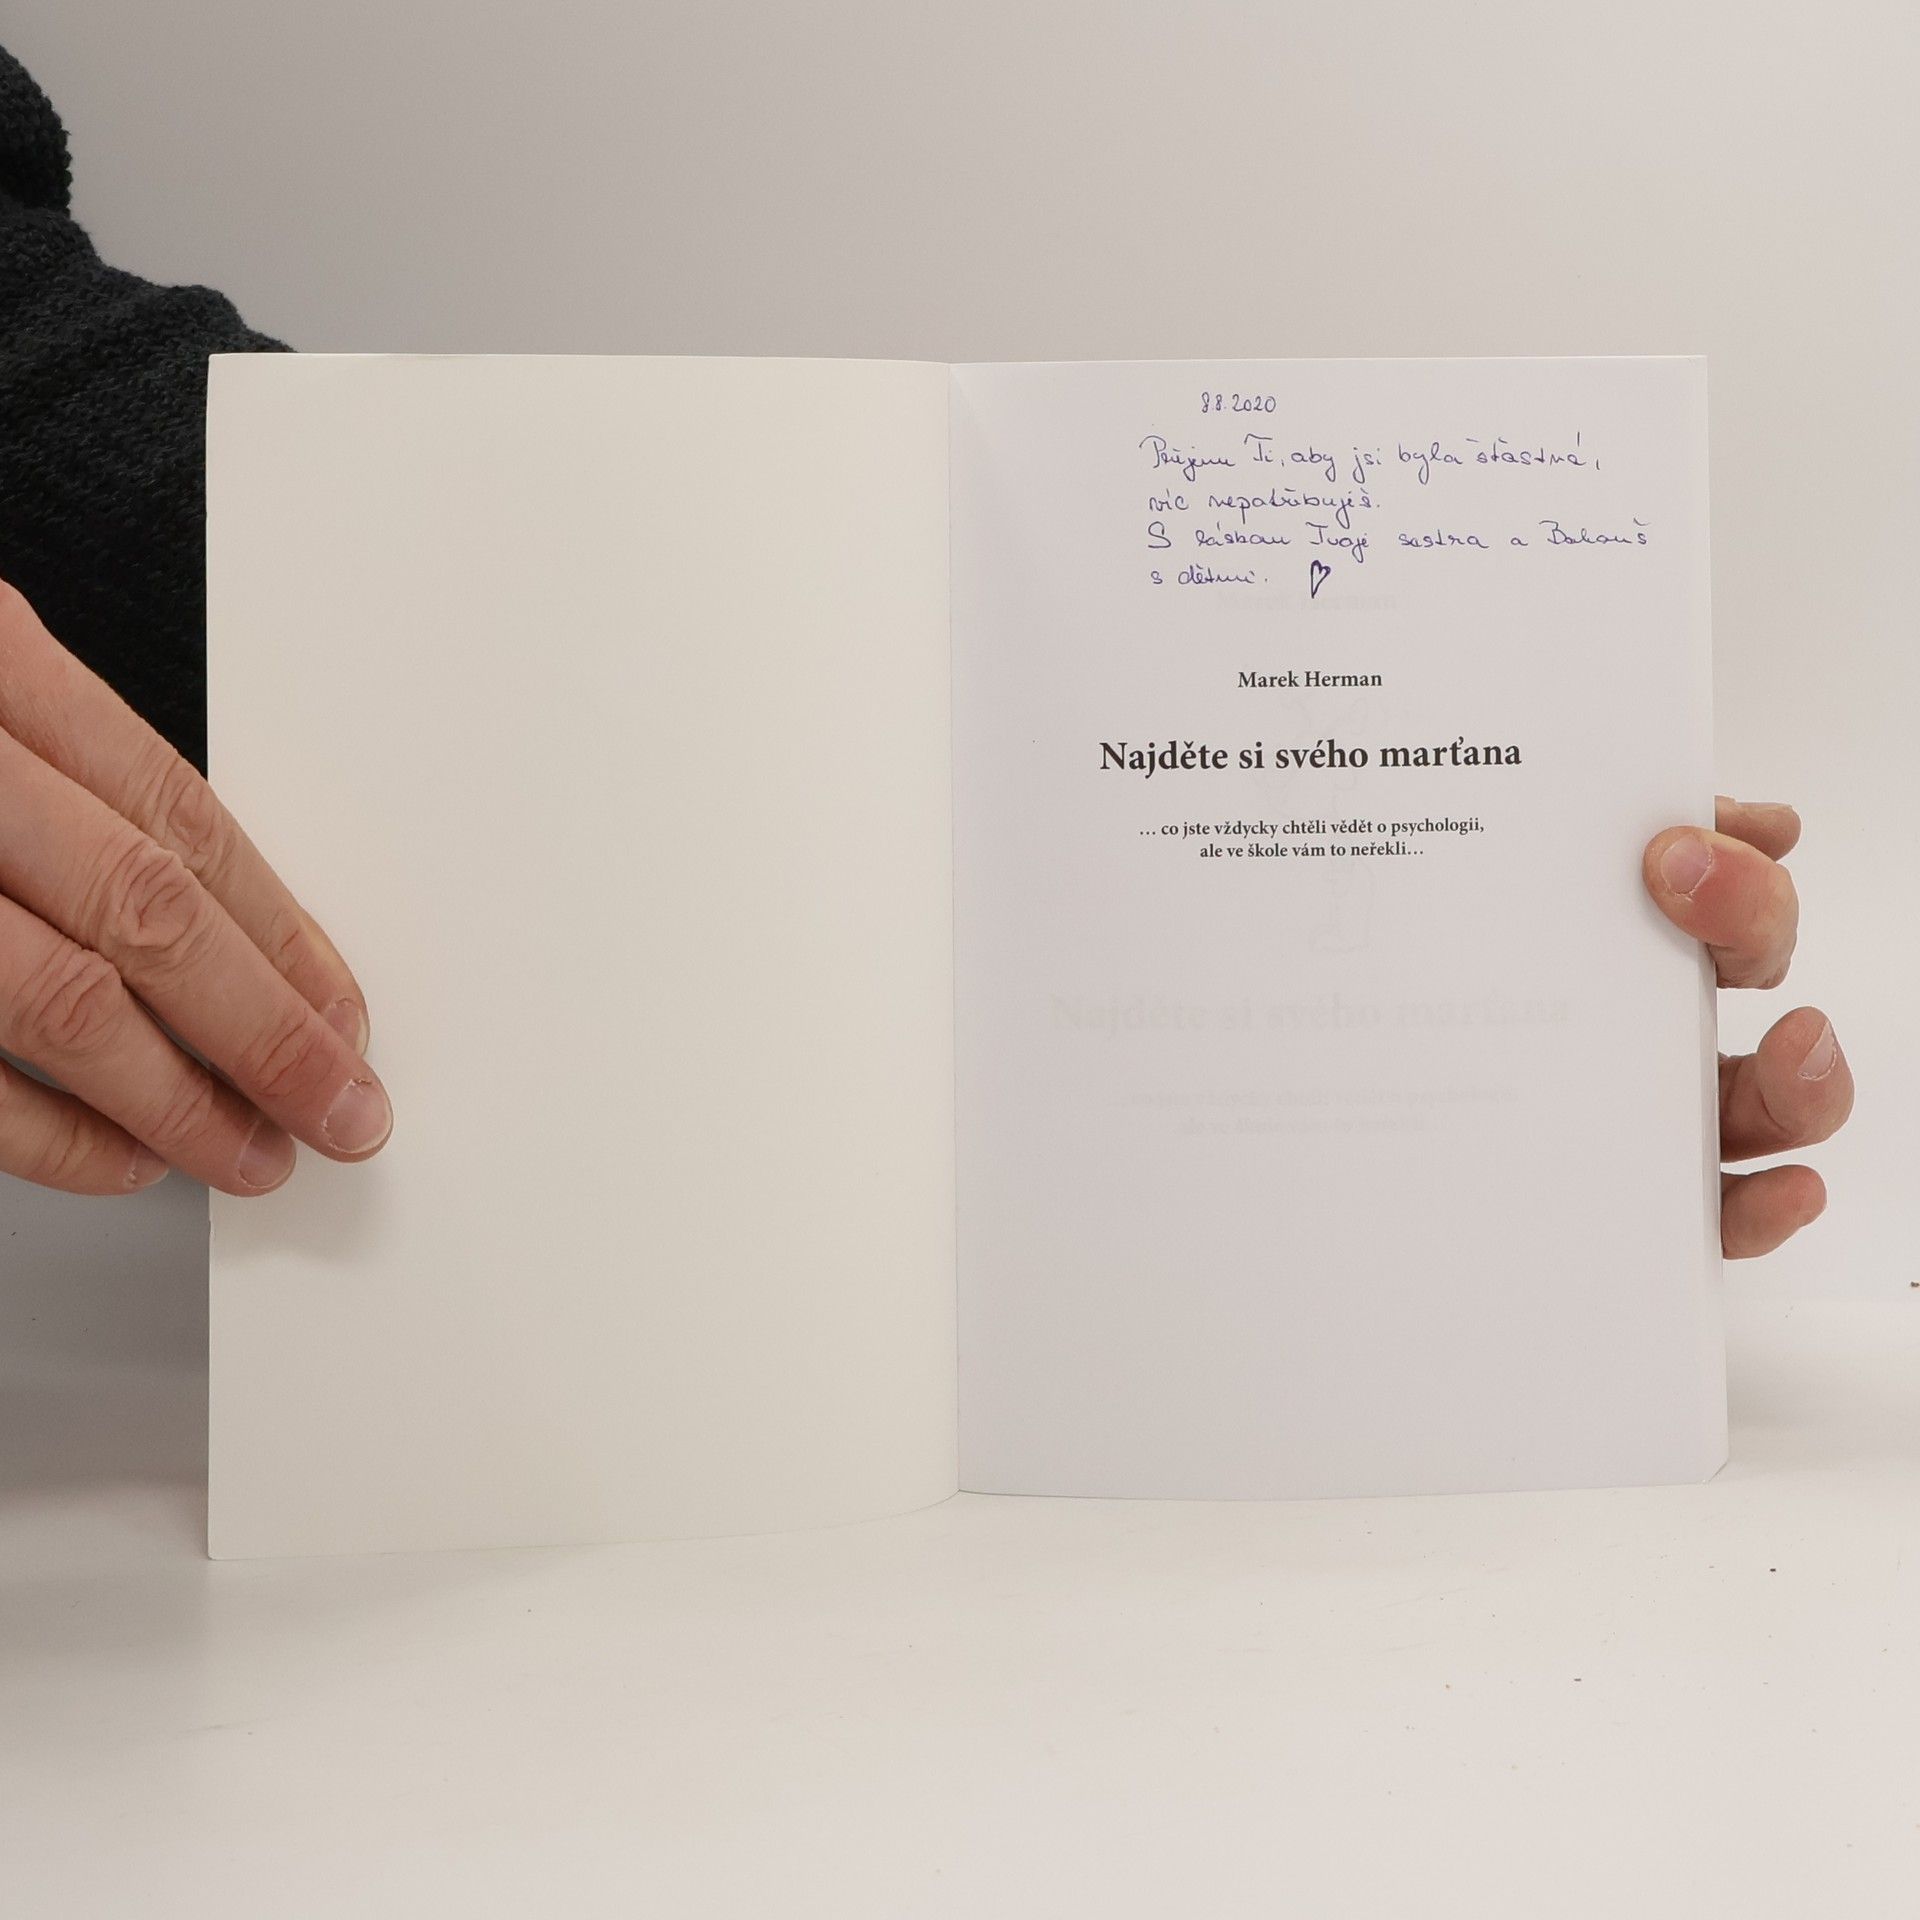 8.8.2020
Přejeme Ti, aby jsi byla šťastná,
víc nepotřebuješ.
S láskou Tvoje sestra a Bohouš
s dětmi.
Marek Herman
Najděte si svého marťana
… co jste vždycky chtěli vědět o psychologii,
ale ve škole vám to neřekli…